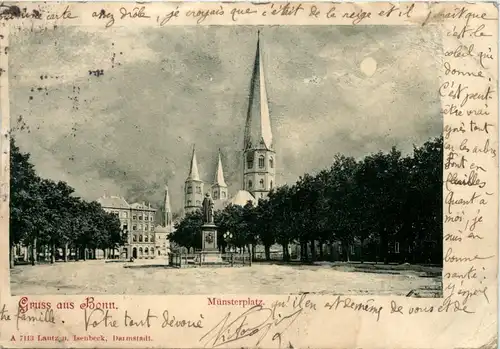 carte est ang drôle, je croyais que c'était de la neige et il paraît que
c'est le
soleil qui
donne.
C'est peut-
être vrai
tant
les arbres
sont en
feuilles
Quant à
moi, je
suis en
santé
j'espère
qu'il en est de même de vous et de
Gruss aus Bonn.
Münsterplatz.
votre famille. Votre tant dévoué
A 7113 Lautz u. Isenbeck, Darmstadt.